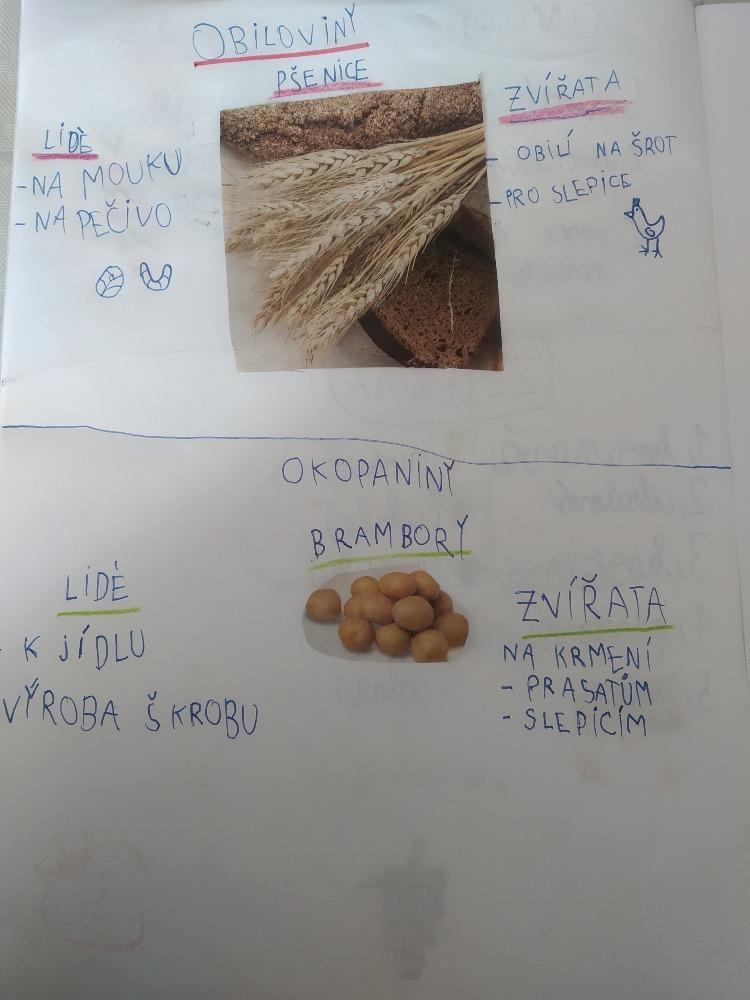 OBILOVINY
PŠENICE
LIDÈ
-NA MOUKU
-NA PEČIVO
ZVÍŘATA
- OBILÍ NA ŠROT
-PRO SLEPICE
OKOPANINY
BRAMBORY
LIDÈ
- K JÍDLU
VÝROBA ŠKROBU
ZVÍŘATA
NA KRMENÍ
- PRASATŮM
- SLEPICÍM